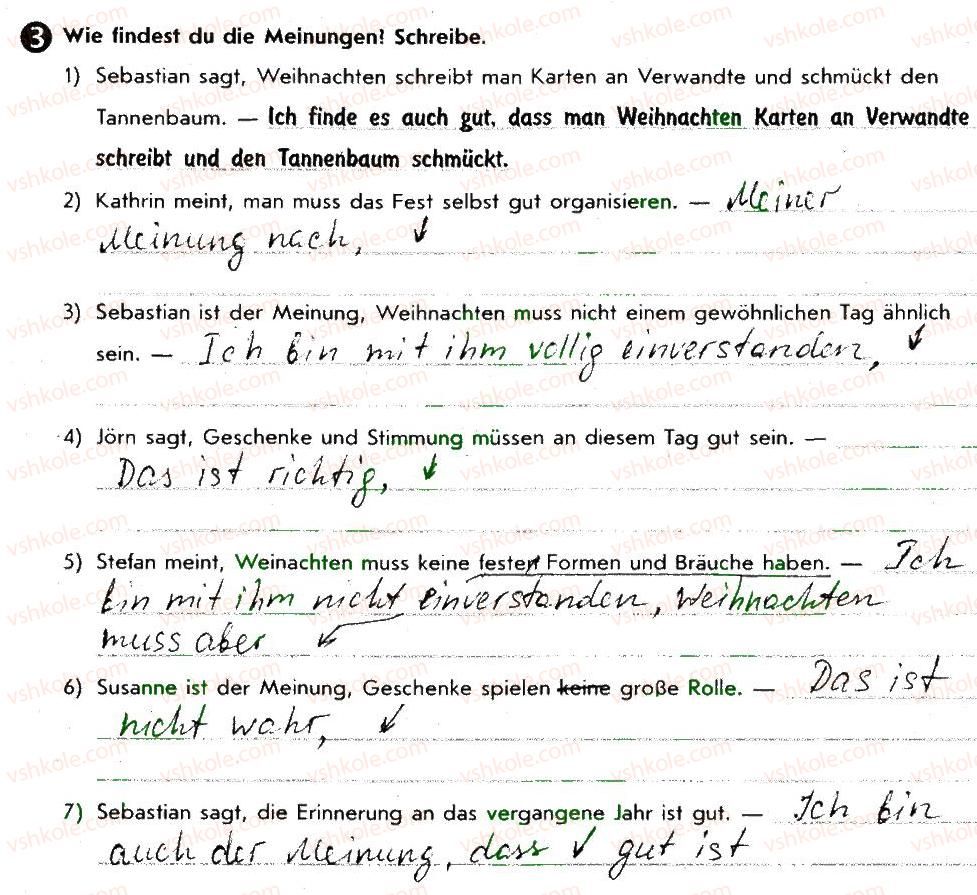 3 Wie findest du die Meinungen? Schreibe.
1) Sebastian sagt, Weihnachten schreibt man Karten an Verwandte und schmückt den
Tannenbaum. — Ich finde es auch gut, dass man Weihnachten Karten an Verwandte
schreibt und den Tannenbaum schmückt.
2) Kathrin meint, man muss das Fest selbst gut organisieren. — Meiner
Meinung nach, ↓
3) Sebastian ist der Meinung, Weihnachten muss nicht einem gewöhnlichen Tag ähnlich
sein. — Ich bin mit ihm vollig einverstanden, ↓
4) Jörn sagt, Geschenke und Stimmung müssen an diesem Tag gut sein. —
Das ist richtig, ↓
5) Stefan meint, Weinachten muss keine festen Formen und Bräuche haben. — Ich
bin mit ihm nicht einverstanden, Weihnachten
muss aber ↙
6) Susanne ist der Meinung, Geschenke spielen keine große Rolle. — Das ist
nicht wahr, ↙
7) Sebastian sagt, die Erinnerung an das vergangene Jahr ist gut. — Ich bin
auch der Meinung, dass ↓ gut ist
vshkole.com